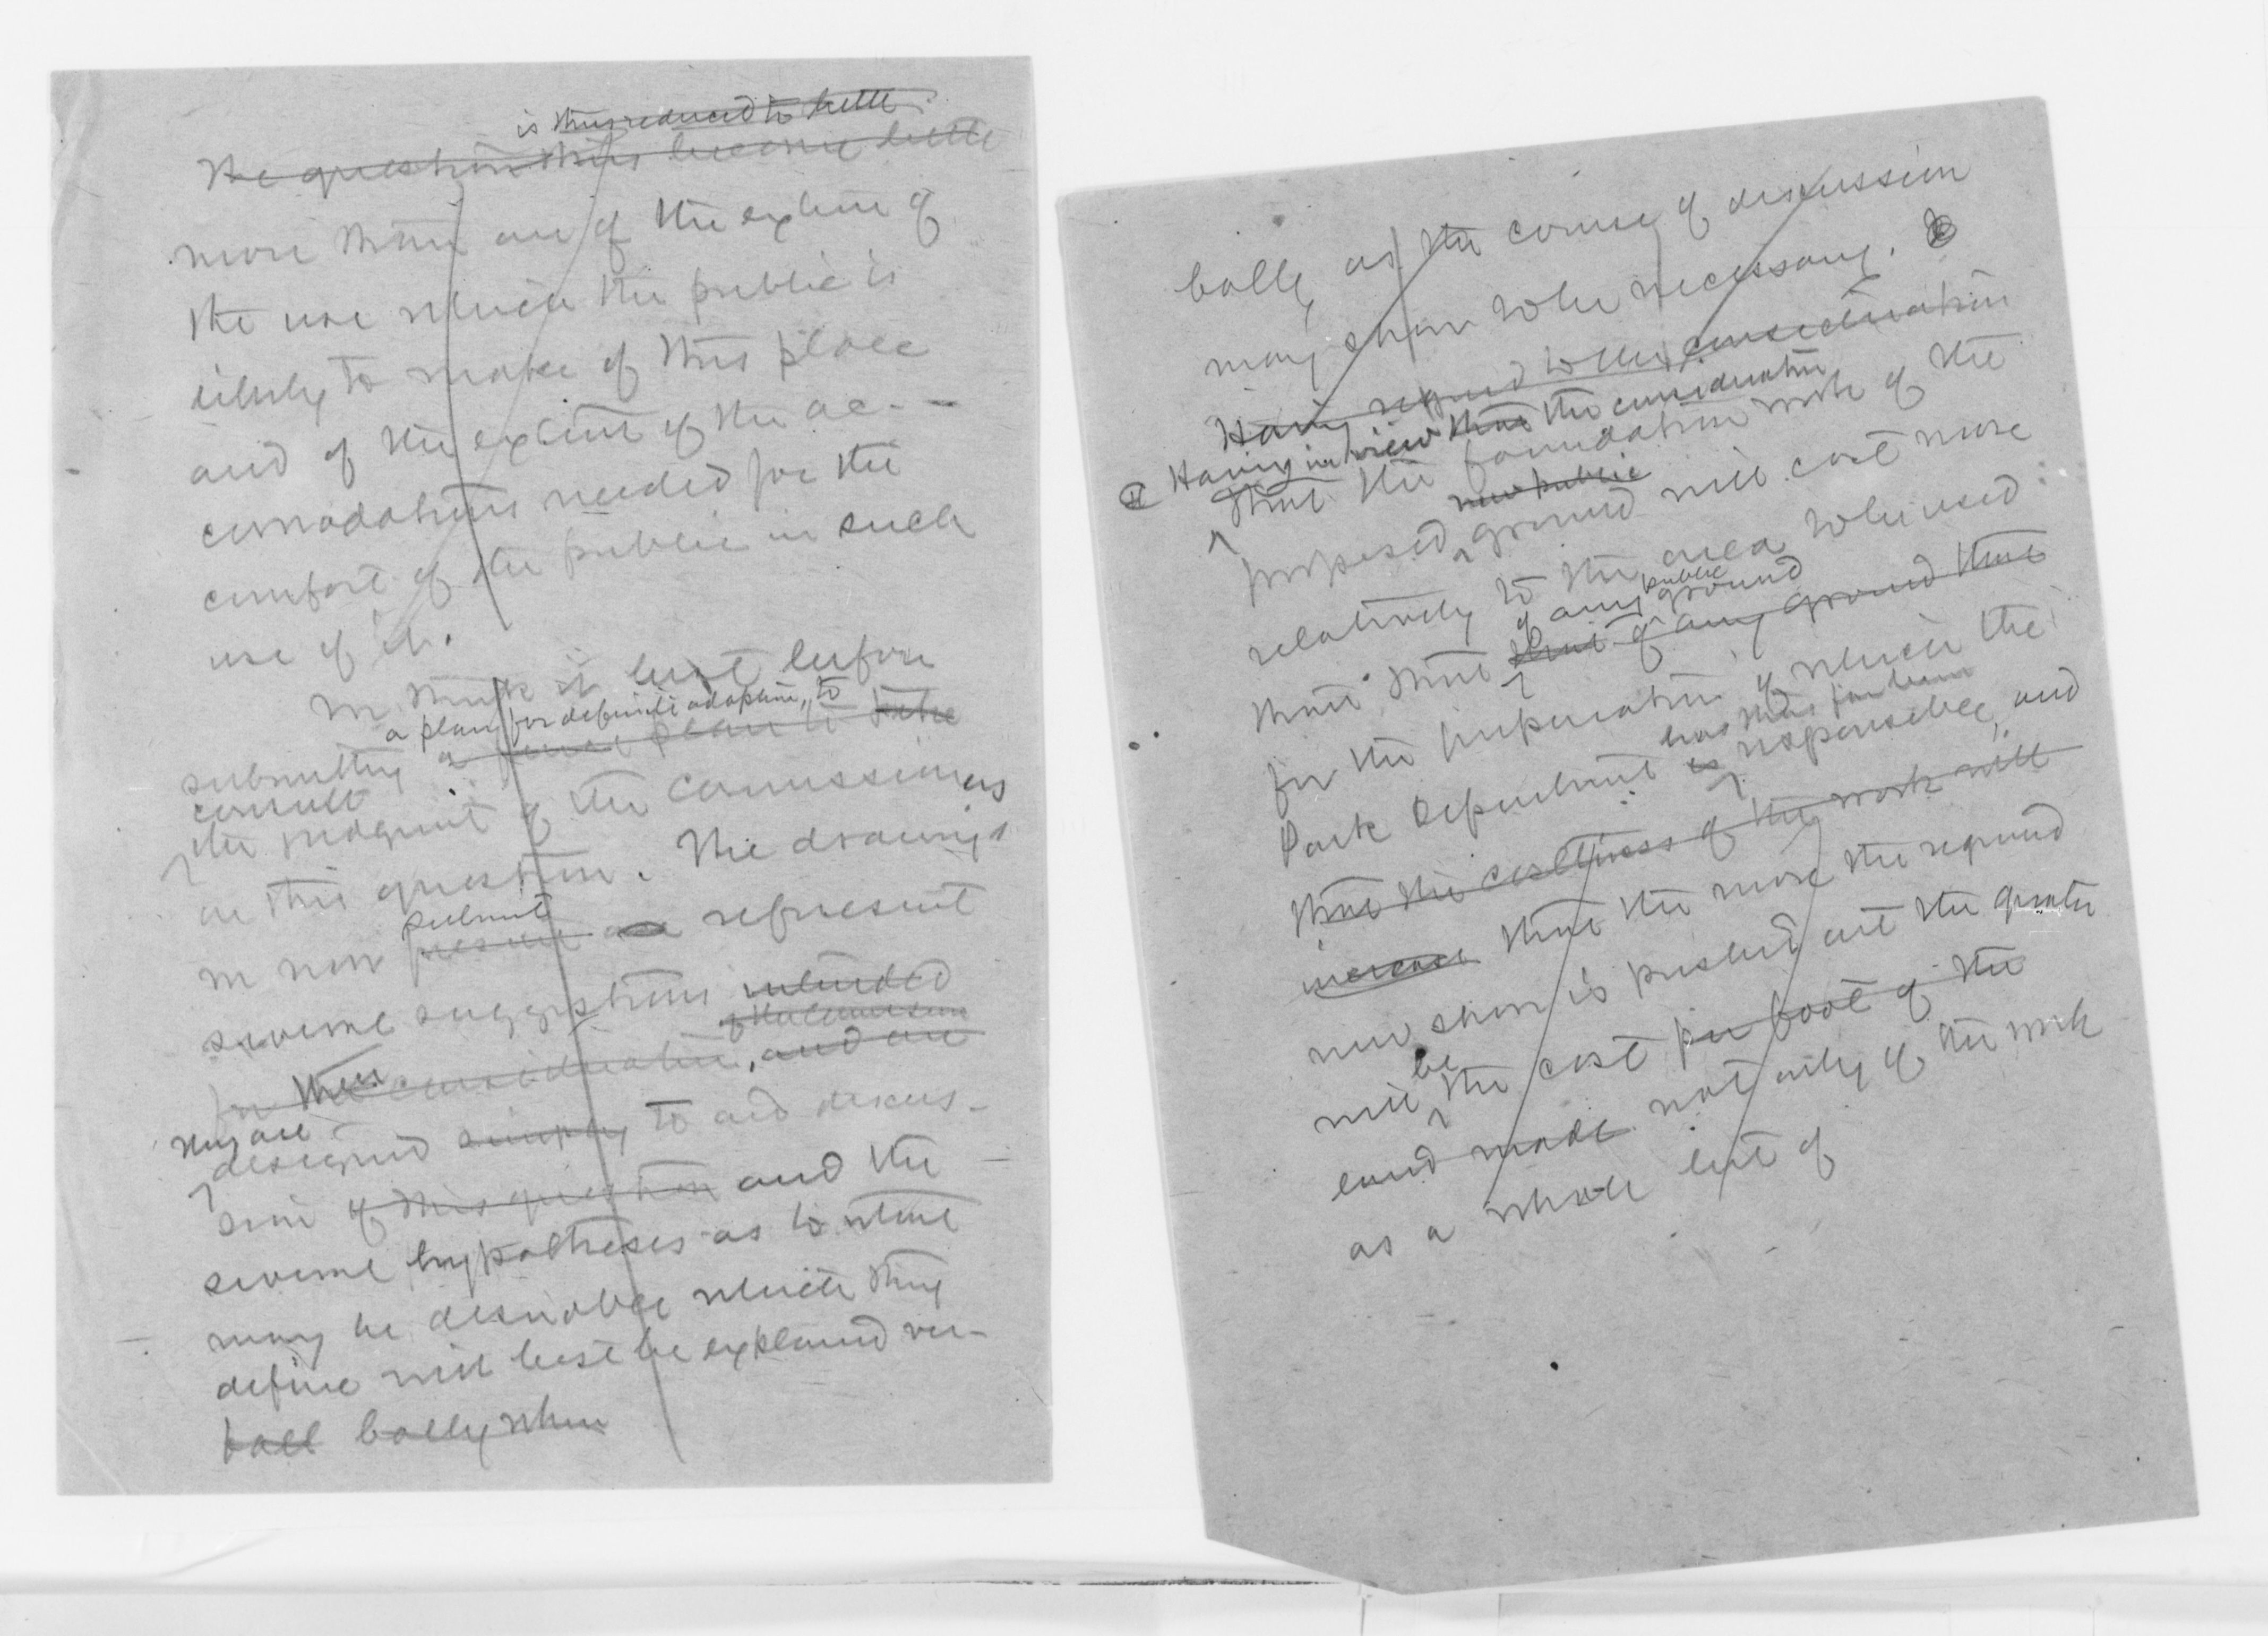 is thus reduced to little
The question thus become little
more than one of the extent of
the use which the public is
likely to make of this place
and of the extent of the ac-
comodations needed for the
comfort of the public in such
use of it.
We think it best before
a plan for definite adoption, to
submitting a plan to take
consult
the judgment of the Commissioners
on this question. The drawings
submit
we now present and represent
several suggestions intended
of the Commission
for their consideration, and are
They are
designed simply to aid discus-
sion of this question and the
several hypotheses as to what
may be desirable which they
define will best be explained ver-
ball bally when
bally as the course of discussion
may show to be necessary.
Having regard to the consideration
Having in view that the consideration
that the foundation work of the
new public
proposed ground will cost more
relatively to the area to be used
public
of any ground
than that that of any ground that
for the preparation of which the
has thus far been
Park Department is responsible, and
that the costliness of the work will
increase that the more the required
new shore is pushed out the greater
be
will the cost per foot of the
land made not only of the work
as a whole but of